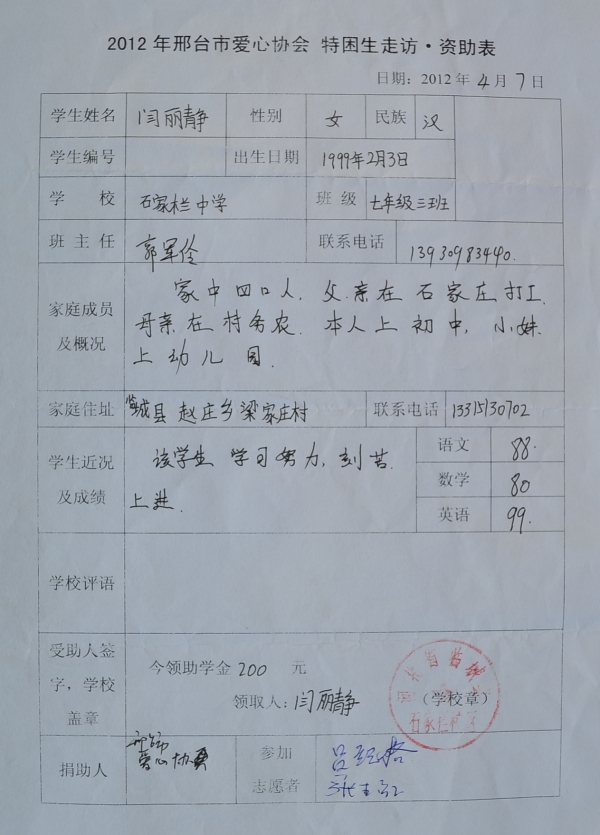 2012年邢台市爱心协会 特困生走访·资助表
日期：2012年4月7日
学生姓名 闫丽静 性别 女 民族 汉
学生编号 出生日期 1999年2月3日
学校 石家栏中学 班级 七年级三班
班主任 郭军伶 联系电话 13930983440.
家庭成员及概况
家中四口人，父亲在石家庄打工
母亲在村务农．本人上初中，小妹
上幼儿园
家庭住址 城县赵庄乡梁家庄村 联系电话 13315130702
学生近况及成绩
该学生学习努力，刻苦
上进.
语文 88.
数学 80
英语 99.
学校评语
受助人签字，学校盖章
今领助学金200元
领取人：闫丽静 （学校章）
捐助人 爱心协会 参加志愿者